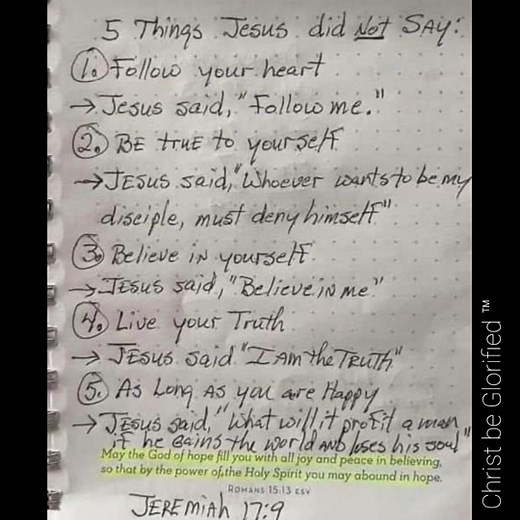 5 Things Jesus did Not SAY:
1. Follow your heart
→ Jesus said, "Follow me."
2. BE truE to yourself
→ JESUS said, "Whoever wants to be my
disciple, must deny himself"
3. Believe in yourself
→ JESUS said, "Believe in me"
4. Live your Truth
→ JESUS said "I AM the TRUTH"
5. As Long As you are Happy
→ JESUS said, "What will it profit a man
if he GAINS the world AND loses his soul"
May the God of hope fill you with all joy and peace in believing,
so that by the power of the Holy Spirit you may abound in hope.
ROMANS 15:13 ESV
JEREMIAH 17:9
Christ be Glorified ™